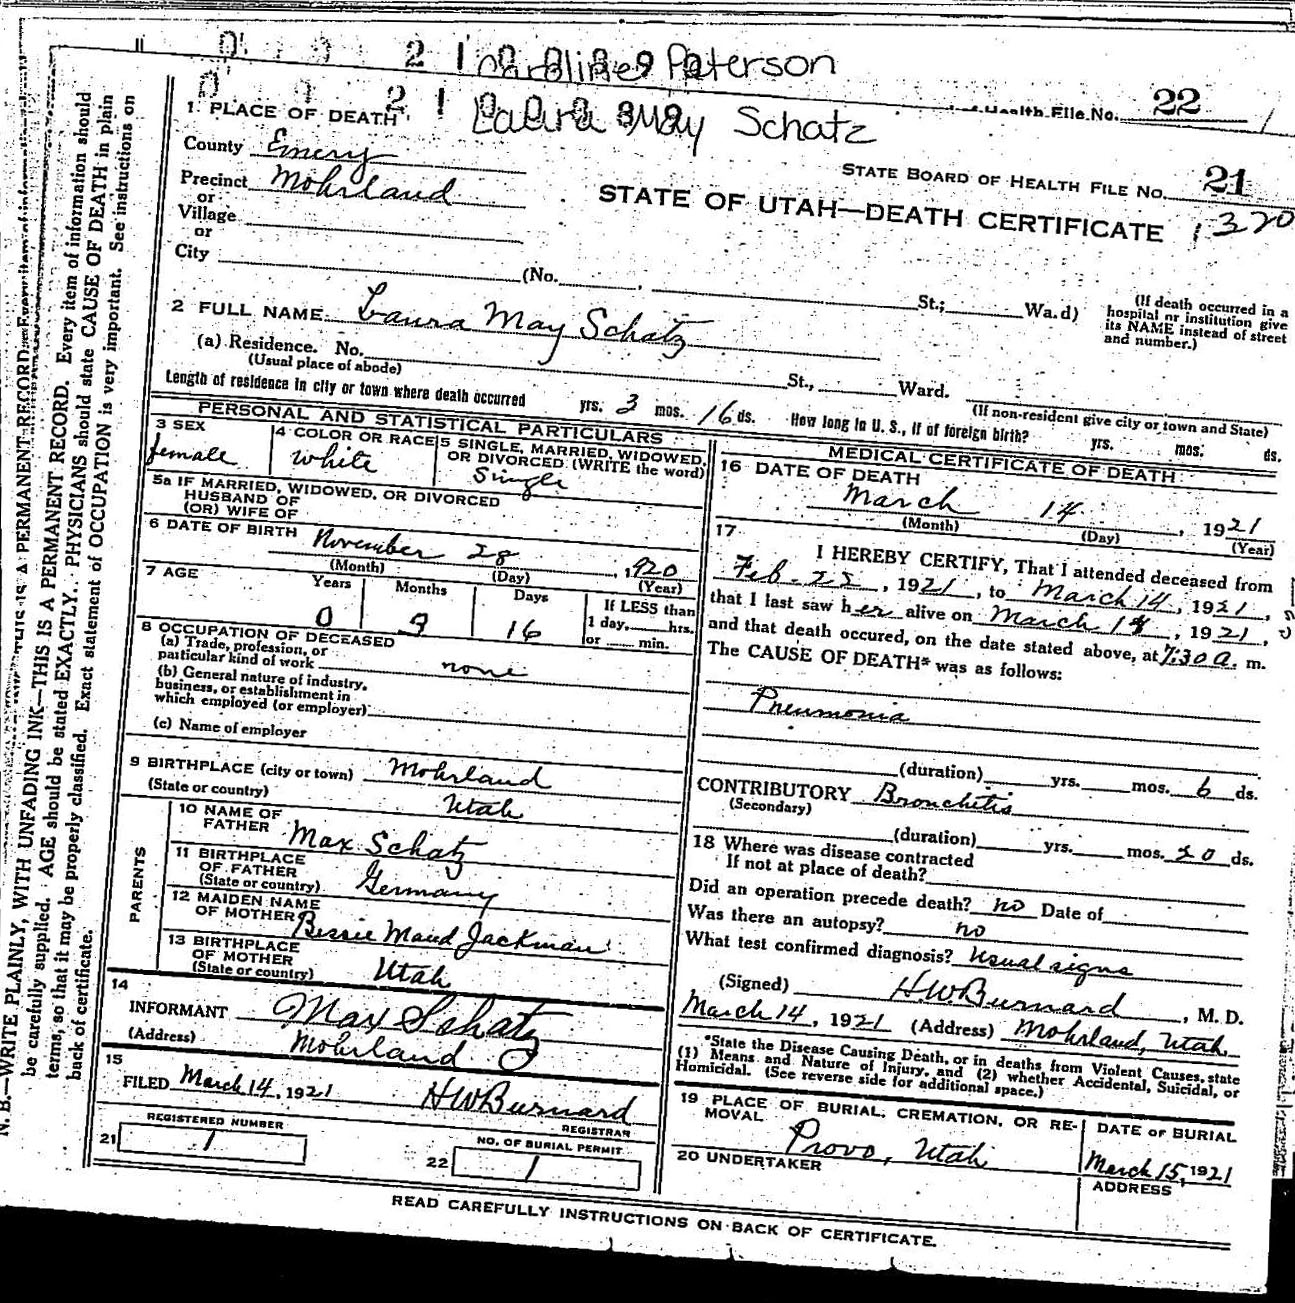 Caroline Paterson
Laura May Schatz
Health File No. 22
1 PLACE OF DEATH
County Emery
STATE BOARD OF HEALTH FILE No. 21
Precinct Mohrland
or
Village
or
City
STATE OF UTAH—DEATH CERTIFICATE 1320
(No. St.; Wa.d)
(If death occurred in a
hospital or institution give
its NAME instead of street
and number.)
2 FULL NAME Laura May Schatz
(a) Residence. No. St., Ward.
(Usual place of abode)
(If non-resident give city or town and State)
Length of residence in city or town where death occurred yrs. 3 mos. 16 ds. How long in U. S., if of foreign birth? yrs. mos. ds.
PERSONAL AND STATISTICAL PARTICULARS
3 SEX
female
4 COLOR OR RACE
white
5 SINGLE, MARRIED, WIDOWED,
OR DIVORCED (WRITE the word)
Single
5a IF MARRIED, WIDOWED, OR DIVORCED
HUSBAND OF
(OR) WIFE OF
6 DATE OF BIRTH November 28, 1920
(Month) (Day) (Year)
7 AGE Years Months Days
If LESS than
1 day, hrs.
or min.
0 3 16
8 OCCUPATION OF DECEASED
(a) Trade, profession, or
particular kind of work none
(b) General nature of industry,
business, or establishment in
which employed (or employer)
(c) Name of employer
9 BIRTHPLACE (city or town) Mohrland
(State or country) Utah
PARENTS
10 NAME OF
FATHER Max Schatz
11 BIRTHPLACE
OF FATHER
(State or country) Germany
12 MAIDEN NAME
OF MOTHER Bessie Maud Jackman
13 BIRTHPLACE
OF MOTHER
(State or country) Utah
14
INFORMANT Max Schatz
(Address) Mohrland
15
FILED March 14, 1921 HWBurnard
REGISTRAR
REGISTERED NUMBER
21 1
NO. OF BURIAL PERMIT
22 1
MEDICAL CERTIFICATE OF DEATH
16 DATE OF DEATH
March 14, 1921
(Month) (Day) (Year)
17
I HEREBY CERTIFY, That I attended deceased from
Feb. 22, 1921, to March 14, 1921,
that I last saw her alive on March 14, 1921,
and that death occured, on the date stated above, at 7:30 a. m.
The CAUSE OF DEATH* was as follows:
Pneumonia
(duration) yrs. mos. 6 ds.
CONTRIBUTORY Bronchitis
(Secondary)
(duration) yrs. mos. 20 ds.
18 Where was disease contracted
If not at place of death?
Did an operation precede death? no Date of
Was there an autopsy? no
What test confirmed diagnosis? Usual signs
(Signed) HWBurnard, M. D.
March 14, 1921 (Address) Mohrland, Utah
*State the Disease Causing Death, or in deaths from Violent Causes, state
(1) Means and Nature of Injury, and (2) whether Accidental, Suicidal, or
Homicidal. (See reverse side for additional space.)
19 PLACE OF BURIAL, CREMATION, OR RE-
MOVAL
Provo, Utah
DATE OF BURIAL
March 15, 1921
20 UNDERTAKER
ADDRESS
READ CAREFULLY INSTRUCTIONS ON BACK OF CERTIFICATE.
N. B.—WRITE PLAINLY, WITH UNFADING INK—THIS IS A PERMANENT RECORD. Every item of information should
be carefully supplied. AGE should be stated EXACTLY. PHYSICIANS should state CAUSE OF DEATH in plain
terms, so that it may be properly classified. Exact statement of OCCUPATION is very important. See instructions on
back of certificate.